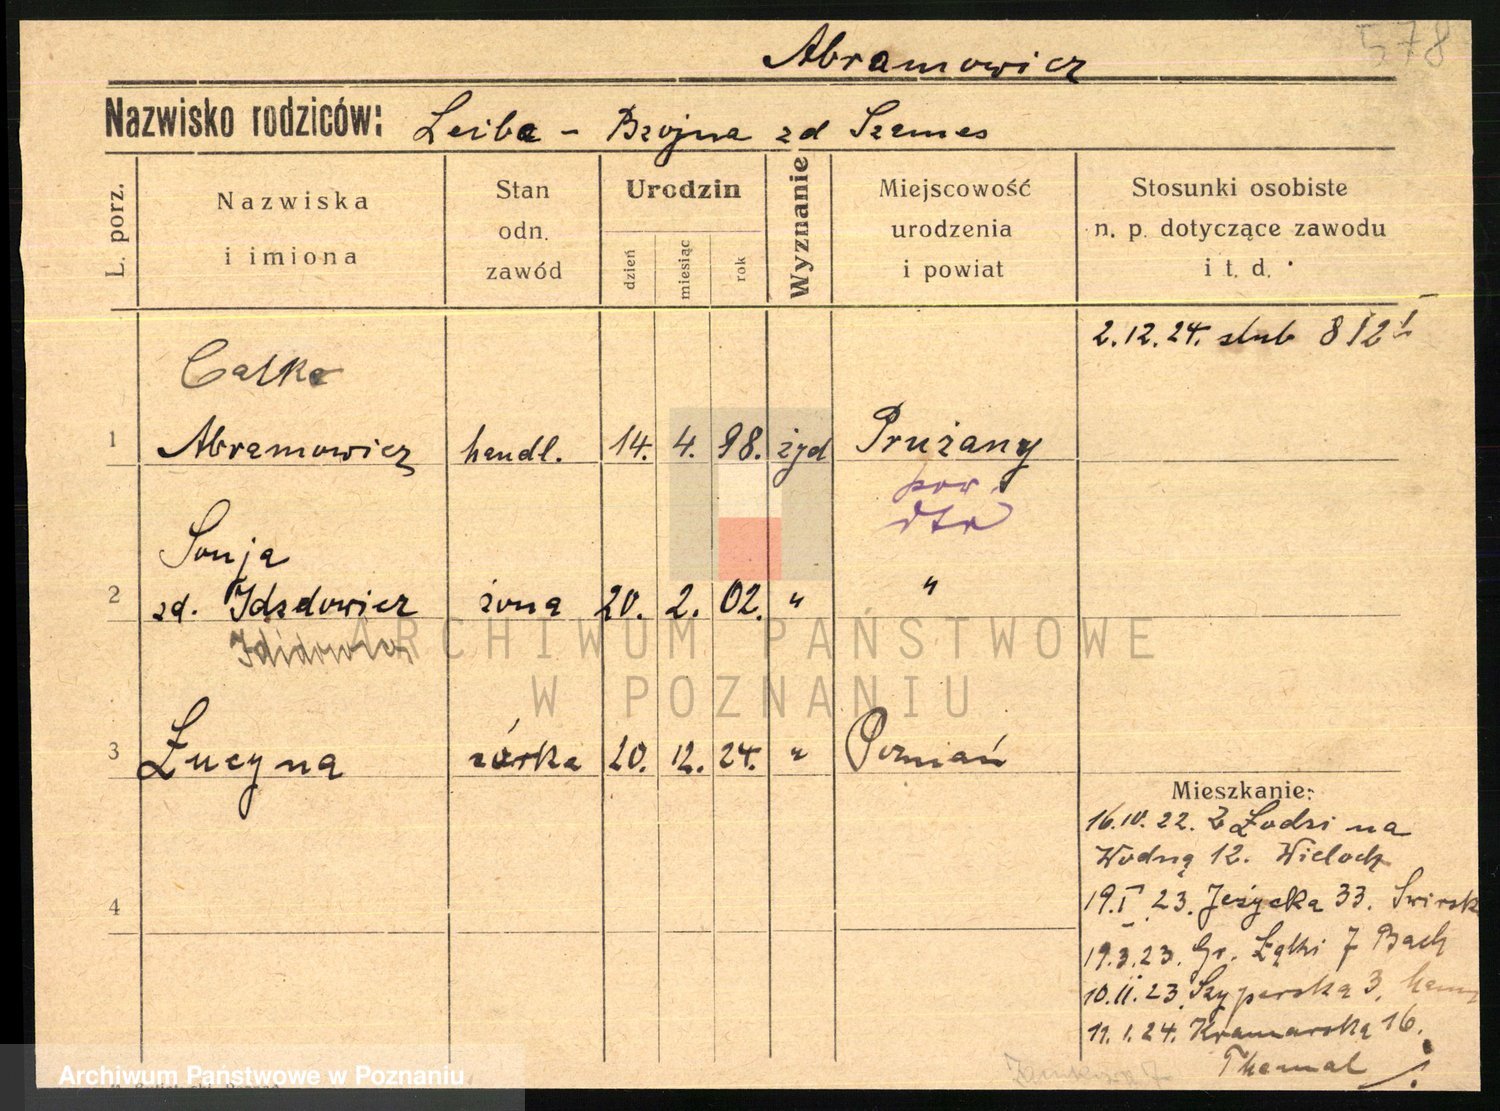 578
Abramowicz
Nazwisko rodziców: Leiba - Brojna zd Szemes
L. porz.
Nazwiska i imiona
Stan odn. zawód
Urodzin
dzień
miesiąc
rok
Wyznanie
Miejscowość urodzenia i powiat
Stosunki osobiste n. p. dotyczące zawodu i t. d.
2.12.24. ślub
Calko
1 Abramowicz handl. 14. 4. 98. żyd Prużany
pow.
dto
Sonja
2 zd. Idzdowicz żona 20. 2. 02. " "
Ididowicz
3 Łucyna córka 20. 12. 24. " Poznań
4
Mieszkanie:
16.IV.22. Z Łodzi na
Wodną 12. Wieloch
19.I.23. Jeżycka 33. Swirsk
19.3.23. Gr. Łąki 7 Bach
10.II.23 Szyperską 3.
11.1.24. Kramarską 16.
Themal
ARCHIWUM PAŃSTWOWE
W POZNANIU
Archiwum Państwowe w Poznaniu